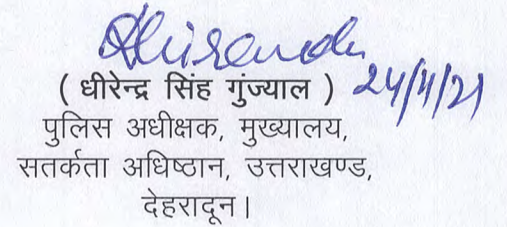 Dhirendra
( धीरेन्द्र सिंह गुंज्याल ) 24/11/21
पुलिस अधीक्षक, मुख्यालय,
सतर्कता अधिष्ठान, उत्तराखण्ड,
देहरादून।